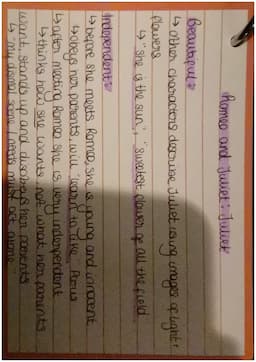 Romeo and Juliet: Juliet
Beautiful:
↳ other characters describe Juliet using images of light +
flowers
↳ "she is the sun", "sweetest flower of all the field
Independent:
↳ before she meets Romeo, she is young and innocent
↳ obeys her parents, will 'learn to like' Paris
↳ after meeting Romeo she is very independent
↳ thinks how she wants not what her parents
want, stands up and disobeys her parents
↳ 'my dismal scene I needs must act alone'